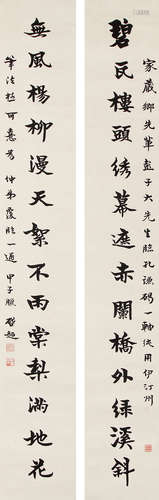 碧瓦樓頭綉幕遮赤闌橋外綠溪斜
無風楊柳漫天絮不雨棠梨滿地花
家藏鄉先輩孟子大先生臨孔謙碣一軸後用伊汀州
筆法極可意
仲弟
臨一過甲子